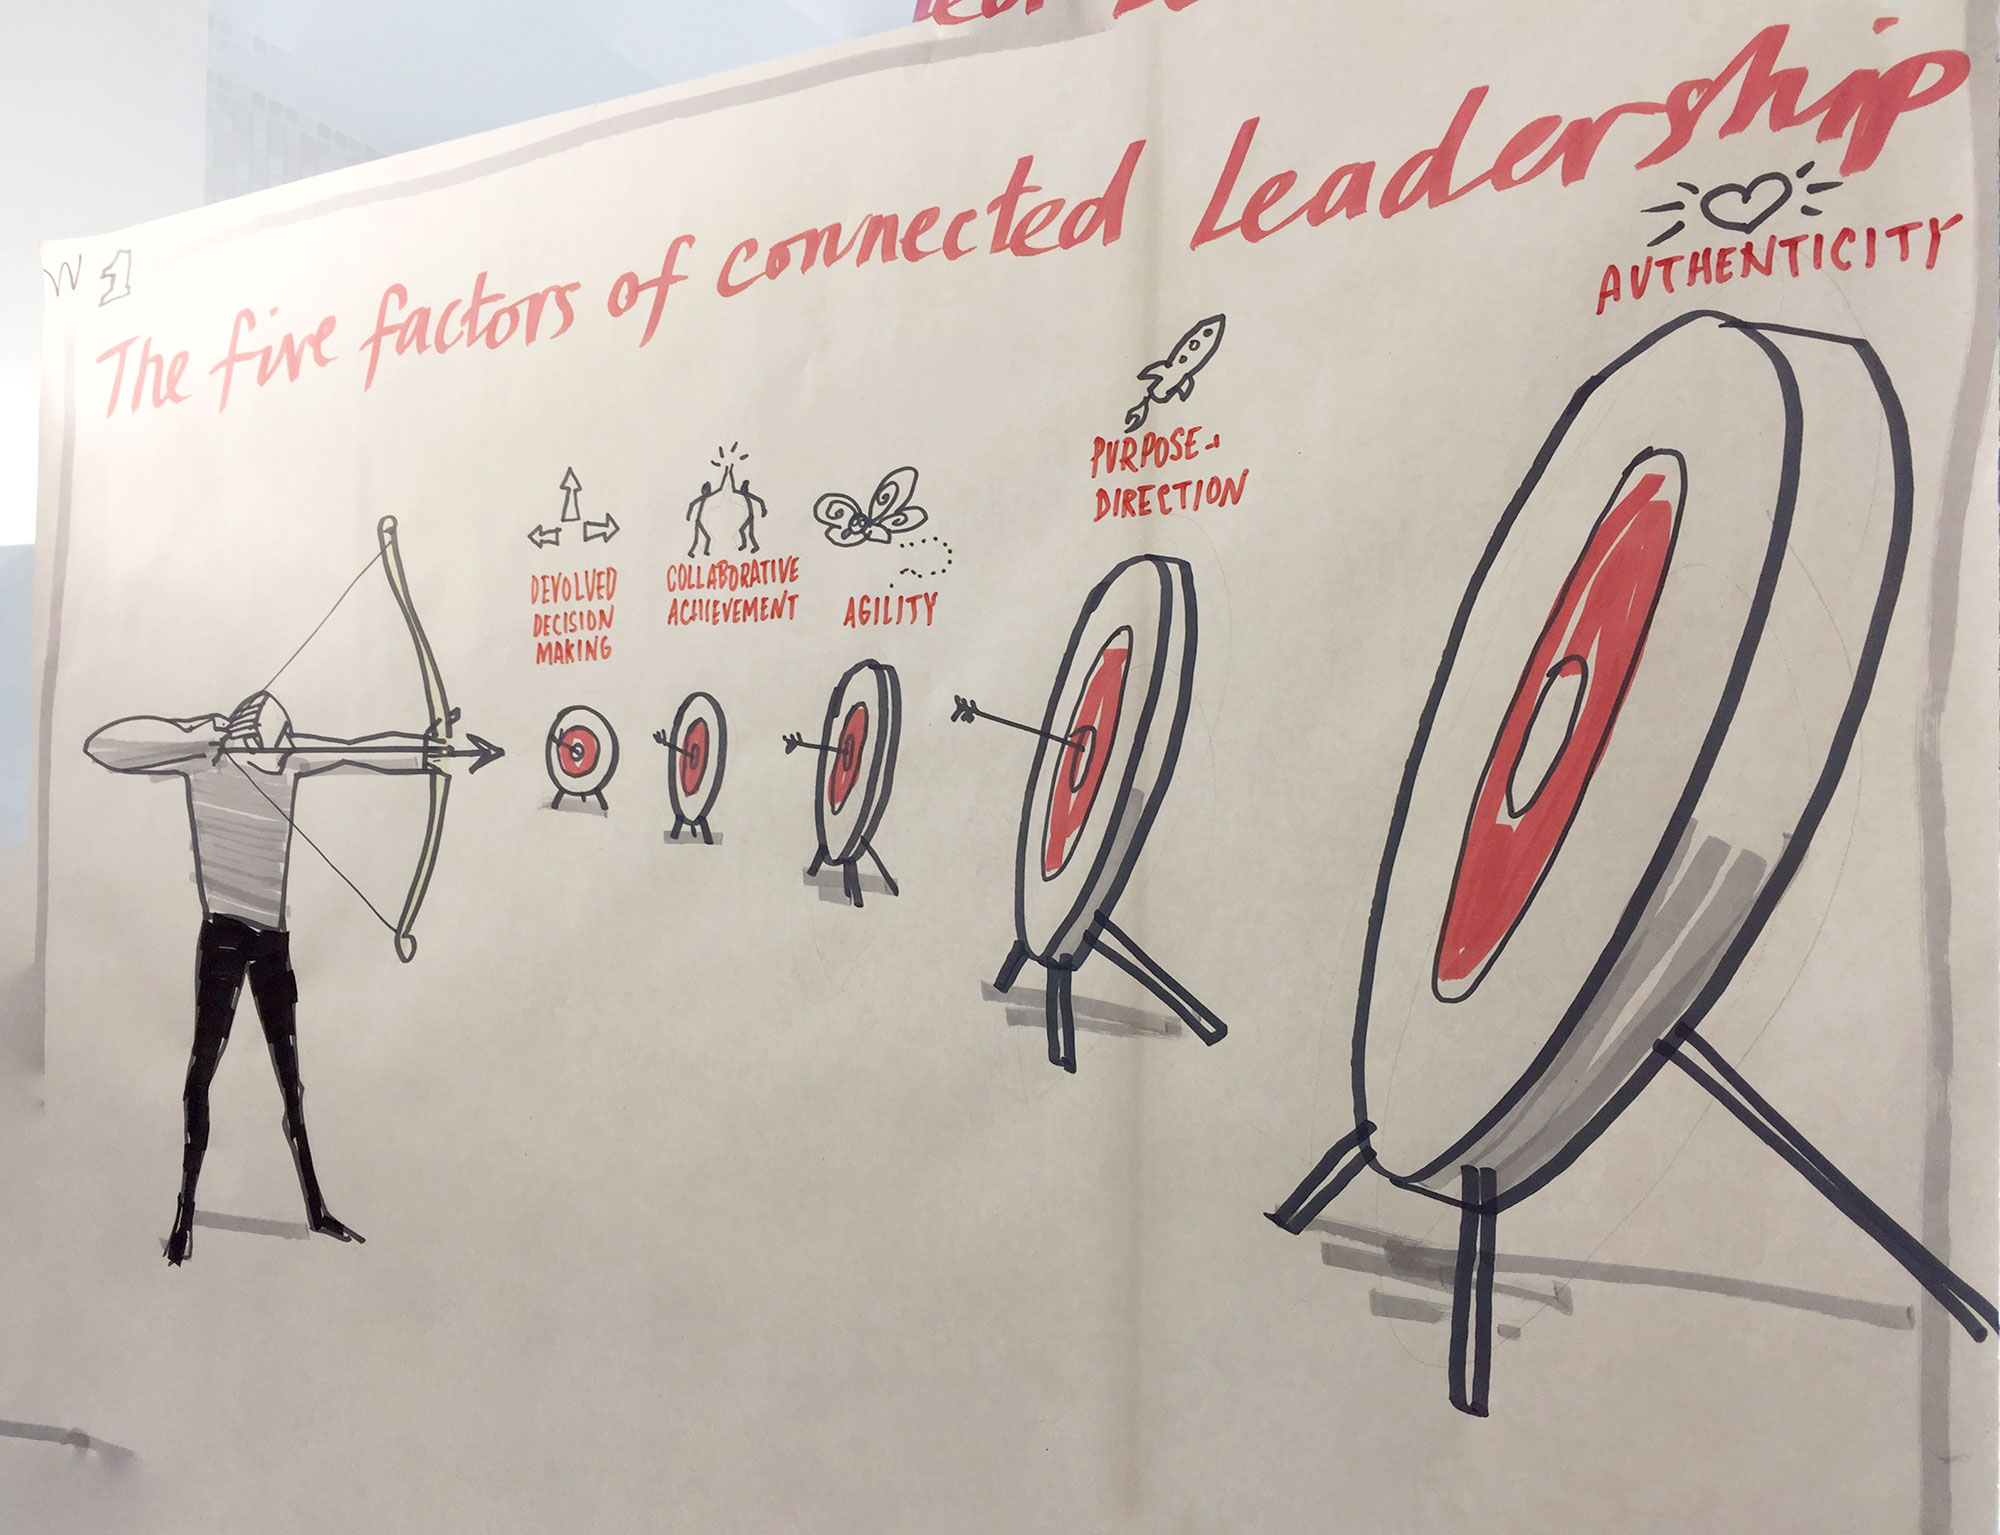 W 1
The five factors of connected Leadership
DEVOLVED
DECISION
MAKING
COLLABORATIVE
ACHIEVEMENT
AGILITY
PURPOSE +
DIRECTION
AUTHENTICITY